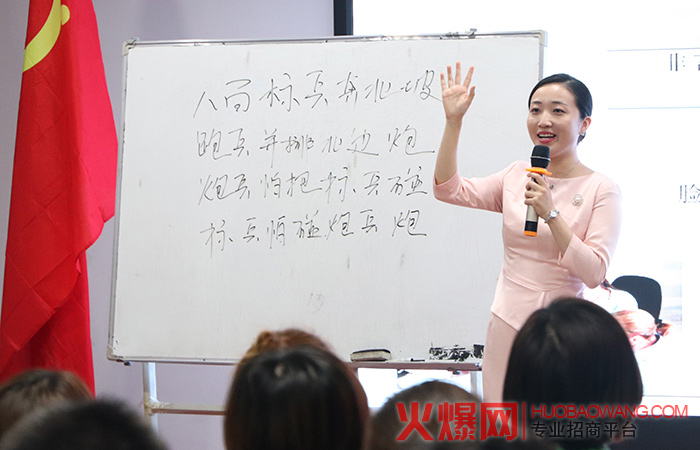 八百标兵奔北坡
跑兵并排北边炮
炮兵怕把标兵碰
标兵怕碰炮兵炮
火爆网 HUOBAOWANG.COM
专业招商平台